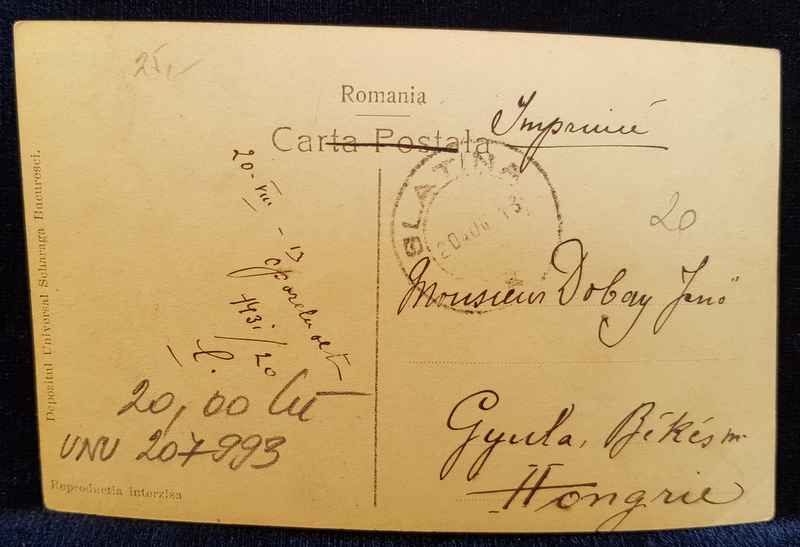 25,
Romania
Carta Postala
Imprimé
SLATINA
20 AUG 13
20
Monsieur Dobay Jenő
Gyula, Békés m.
Hongrie
20-VIII-13
20,00 lei
UNU 207993
Depozitul Universal Scharaga Bucuresci.
Reproductia interzisa